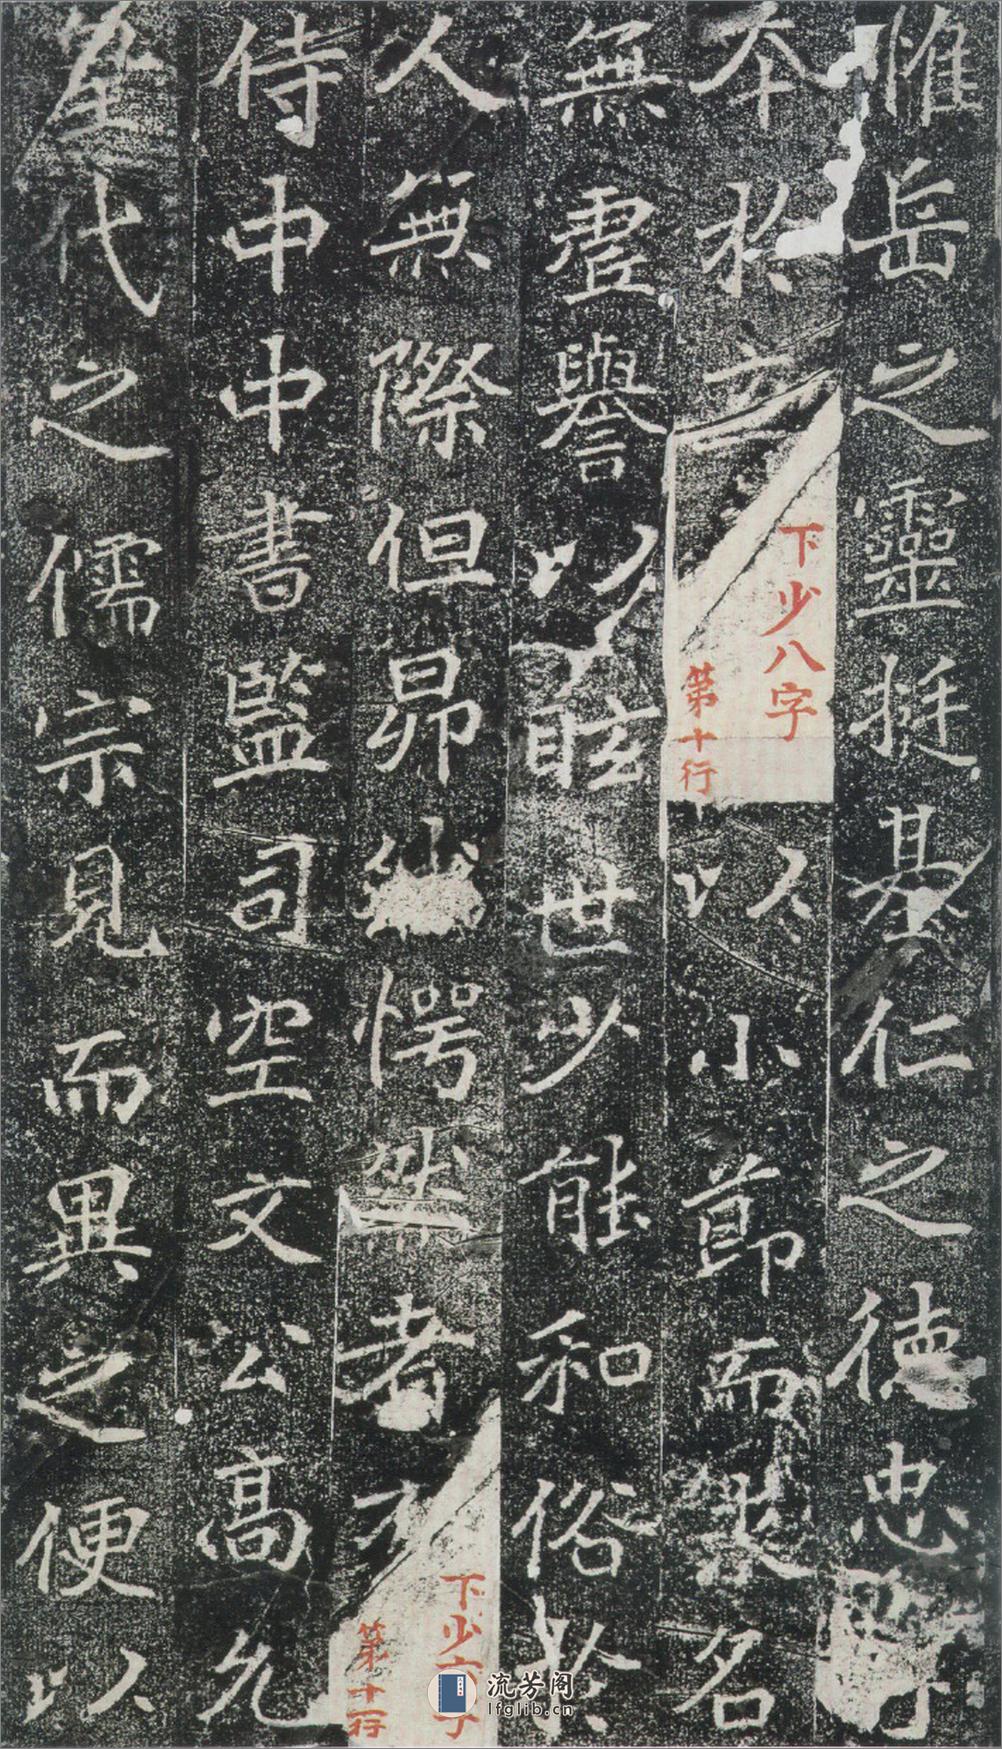 惟岳之靈挺基仁之德忠
本於立
下少八字
第十行
以小節而求名
無虛譽以眩世少能和俗於
人無際但昂
愕然者方
下少
字
第十一行
侍中中書監司空文公高允
皇代之儒宗見而異之便以
流芳阁
lfglib.cn